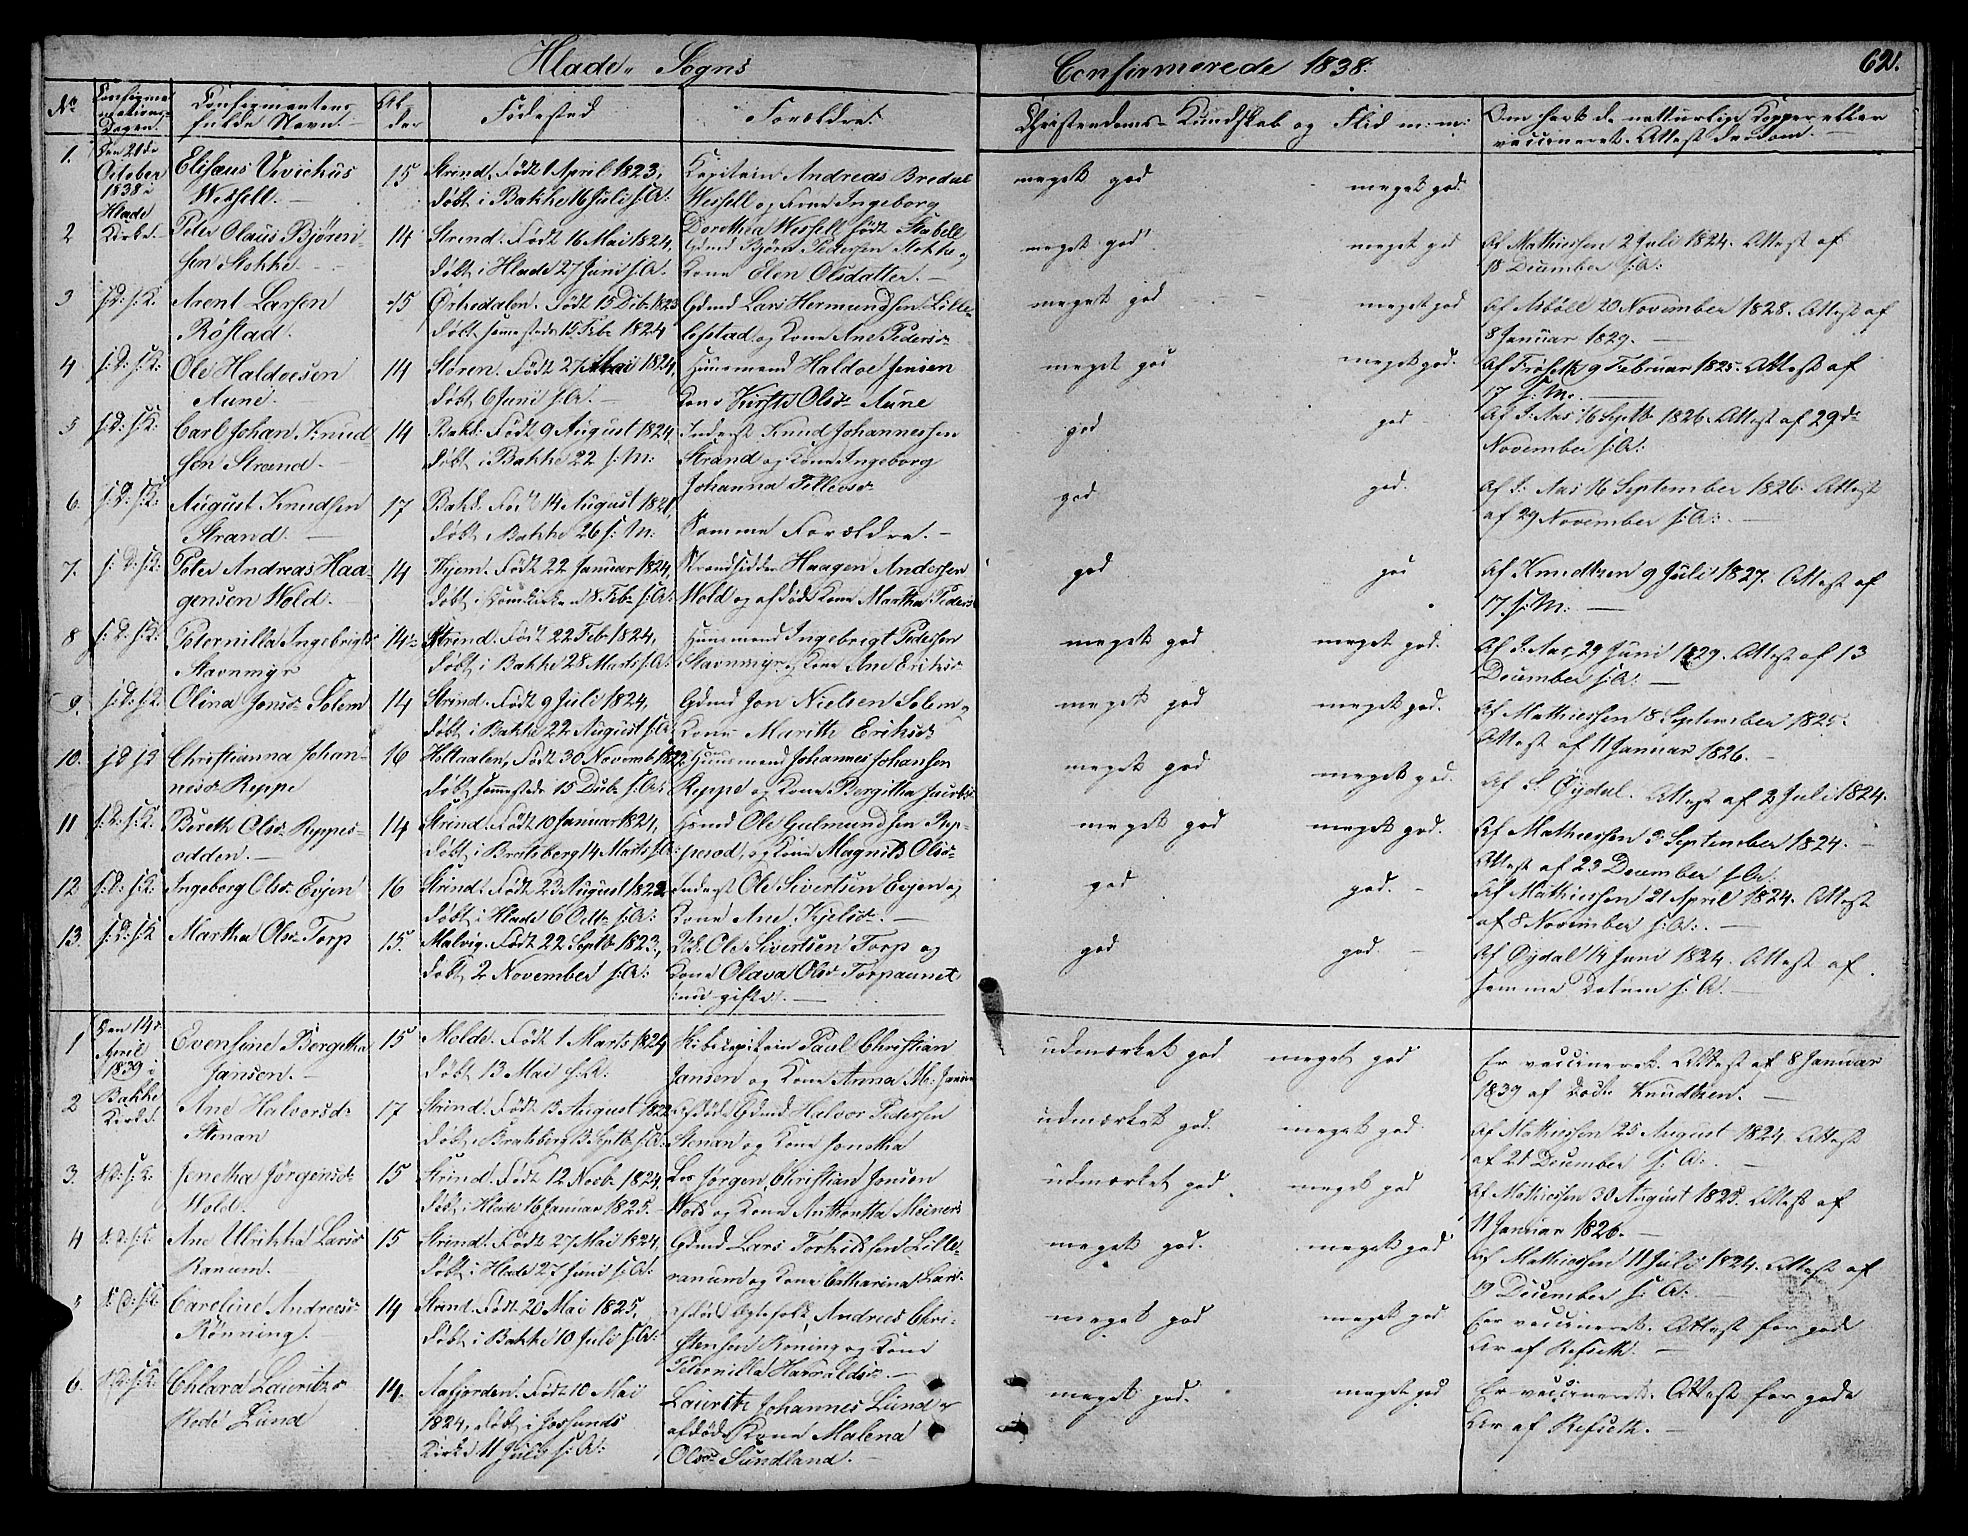 Hlade Sogns
Confirmerede 1838.
62.
No
Confirmationsdagen.
Confirmantens fulde Navn.
Alder
Fødested
Forældre.
Christendoms-Kundskab og Flid m: m:
Om havt de naturlige Kopper eller
vaccineret. Attest derom.
1. Den 21de October 1838 i Hlade Kirke.
Elisæus
Wessell.
15
Strind. Født 1 April 1823,
døbt i Bakke 16 Juli s: A:
Kapitain Andreas Bredal
Wessell og Frue Ingeborg
Dorothea Wessell født Stabell
meget god
meget god.
2
Peter Olaus Bjørn-
sen Stokke.
14
Strind. Født 16 Mai 1824,
døbt i Hlade 27 Juni s: A:
Gdmd Bjørn Pedersen Stokke og
Kone Elen Olsdatter.
meget god.
meget god
Af Mathiessen 2 Juli 1824. Attest af
18 December s: A:
3 s: D: s: K:
Arent Larsen
Røstad.
15
Født 15 Dcb. 1823
døbt sammesteds 15 Feb. 1824
Gdmd Lars Hermundsen Lille-
og Kone Ane Pedersd.
meget god
meget god
Af Asbøll 20 November 1828. Attest af
8 Januar 1829.
4 s: D: s: K:
Ole Haldosen
Aune.
14
Støren. Født 27 Mai 1824,
døbt 6 Juni s: A:
Huusmand Haldo Jensen
Kone Kirsti Olsd. Aune
meget god
meget god.
Af 9 Februar 1825. Attest af
17 s: M:
5 s: D: s: K:
Carl Johan Knud-
sen Strand.
14
Bakl. Født 9 August 1824,
døbt i Bakke 22 s: M:
Inderst Knud Johannessen
Strand og Kone Ingeborg
Johanna
god
god
Af J: Aas 16 Septb 1826. Attest af 29de
November s: A:
6. s: D: s: K:
August Knudsen
Strand.
17
Bakl. Født 14 August 1821,
døbt i Bakke 26 s: M:
Samme Forældre.
god
god.
Af J: Aas 16 September 1826. Attest
af 29 November s: A:
7. s: D: s: K:
Peter Andreas Haa-
gensen Wold.
14
Hjem. Født 22 Januar 1824,
døbt i Domkirken 8 Feb. s: A:
Strandsidder Haagen Andersen
Wold og afdøde Kone Martha Peders
god
god
Af Knudtzen 9 Juli 1827. Attest af
17 s: M:
8 s: D: s: K:
Peternilla Ingebrigtsd
Stavnmyr
14
Strind. Født 22 Feb. 1824,
døbt i Bakke 28 Marts s: A:
Huusmand Ingebrigt Pedersen
Stavnmyr og Kone Ane Eriksd
meget god
meget god.
Af J: Aas, 29 Juni 1829. Attest af 13
December s: A:
9. s: D: s: K:
Olina Jonsd. Solem
14
Strind. Født 9 Juli 1824,
døbt i Bakke 22 August s: A:
Gdmd Jon Nielsen Solem og
Kone Marith Eriksd
meget god
meget god.
Af Mathiessen 8 September 1825.
Attest af 11 Januar 1826.
10. s: D: s: K:
Christianna Johan-
nesd. Reppe
16
Holtaalen, Født 30 Novemb. 1822
døbt sammesteds 15 Dcb. s: A:
Huusmand Johannes Johansen
Reppe og Kone Bergitha
meget god
meget god.
Af Øydal. Attest af 2 Juli 1824.
11 s: D: s: K:
Bereth Olsd. Reppes-
odden.
14
Strind. Født 10 Januar 1824,
døbt i Bratsberg 14 Marts s: A:
Gdmd Ole Gulmundsen Rep-
og Kone Magnild Olsd
meget god
meget god.
Af Mathiessen 3 September 1824.
Attest af 23 December s: A:
12. s: D: s: K:
Ingeborg Olsd. Evjen
16
Strind. Født 23 August 1822
døbt i Hlade 6 Octb. s: A:
Inderst Ole Sivertsen Evjen og
Kone Ane Kjelsd.
god
god.
Af Mathiessen 21 April 1824. Attest
af 8 November s: A:
13. s: D: s: K
Martha Olsd. Torp
15.
Malvig. Født 22 Septb. 1823,
døbt 2 November s: A:
Ole Sivertsen Torp og
Kone Olava Olsd. Torpaunet
gifte.
god
god.
Af Øydal 14 Juni 1824. Attest af
samme Datum s: A:
1 Den 14de April 1839 i Bakke Kirke.
Evensine Bergitha
Jansen.
15
Molde. Født 1 Marts 1824
døbt 13 Mai s: A:
Skibscapitain Paul Christian
Jansen og Kone Anna M: Jansen
udmærket god
meget god
Er vaccineret. Attest af 8 Januar
1839 af Knudtzen.
2
Ane Halvorsd.
Stenan
17
Strind. Født 15 August 1822
døbt i Bratsberg 13 Septb. s: A:
Afdøde Gdmd Halvor Pedersen
Stenan og Kone Jonetha
udmærket god.
meget god.
Af Mathiessen 25 August 1824. Attest
af 21 December s: A:
3. s: D: s: K:
Jonetha Jørgensd.
Wold.
15
Strind. Født 12 Novb. 1824,
døbt i Hlade 16 Januar 1825.
Jørgen Christian Jensen
Wold og Kone Anthonetta Meiners
udmærket god
meget god
Af Mathiessen 30 August 1825. Attest af
11 Januar 1826.
4 s: D: s: K:
Ane Ulrikka Larsd
Ranum.
15
Strind. Født 27 Mai 1824,
døbt i Hlade 27 Juni s: A:
Gdmd Lars Torkildsen Lille-
ranum og Kone Catharina Lars-
meget god.
meget god
Af Mathiessen 11 Juli 1824. Attest af
19 December s: A:
5 s: D: s: K:
Caroline Andreasd
Rønning.
14
Strind. Født 20 Mai 1825,
døbt i Bakke 10 Juli s: A:
Afdøde Ægtefolk Andreas Chri-
stensen Røning og Kone
Peternilla Harraldsd.
meget god
meget god
Er vaccineret. Attest for gode
Ar af
6. s: D: s: K:
Chlara Lauritzd
Rodø Lund
14.
Aafjorden. Født 10 Mai
1824, døbt i Jøssunds
Kirke 11 Juli s: A:
Lauritz Johannes Lund og
afdøde Kone Malena
Olsd. Sundland.
meget god.
meget god
Er vaccineret. Attest for gode
Ar af